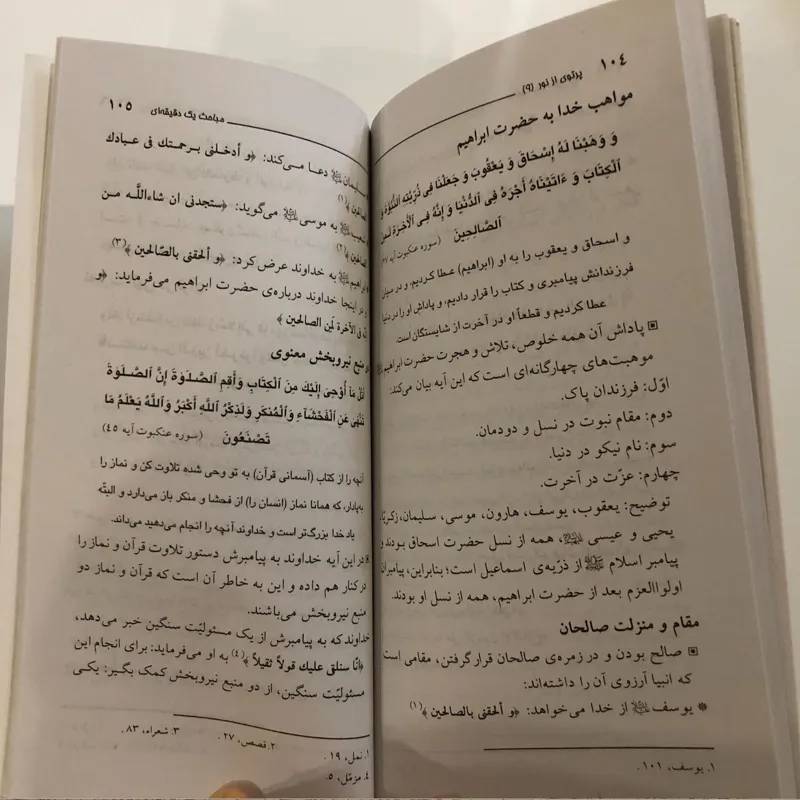 ۱۰۴
پرتوی از نور (۹)
مواهب خدا به حضرت ابراهیم
وَ وَهَبْنَا لَهُ إِسْحَاقَ وَ يَعْقُوبَ وَ جَعَلْنَا فِى ذُرِّيَّتِهِ النُّبُوَّةَ وَ
الْكِتَابَ وَ ءَاتَيْنَاهُ أَجْرَهُ فِى الدُّنْيَا وَ إِنَّهُ فِى الْأَخِرَةِ لَمِنَ
الصَّالِحِينَ (سوره عنکبوت آیه ۲۷)
و اسحاق و یعقوب را به او (ابراهیم) عطا کردیم، و در میان
فرزندانش پیامبری و کتاب را قرار دادیم، و پاداش او را در دنیا
عطا کردیم و قطعاً او در آخرت از شایستگان است.
پاداش آن همه خلوص، تلاش و هجرت حضرت ابراهیم
موهبت‌های چهارگانه‌ای است که این آیه بیان می‌کند:
اوّل: فرزندان پاک.
دوم: مقام نبوت در نسل و دودمان.
سوم: نام نیکو در دنیا.
چهارم: عزّت در آخرت.
توضیح: یعقوب، یوسف، هارون، موسی، سلیمان، زکریّا،
یحیی و عیسی ﷺ، همه از نسل حضرت اسحاق بودند و
پیامبر اسلام ﷺ از ذرّیه‌ی اسماعیل است؛ بنابراین، پیامبران
اولواالعزم بعد از حضرت ابراهیم، همه از نسل او بودند.
مقام و منزلت صالحان
صالح بودن و در زمره‌ی صالحان قرار گرفتن، مقامی است
که انبیا آرزوی آن را داشته‌اند:
* یوسف از خدا می‌خواهد: ﴿و ألحقنی بالصالحین﴾ (۱)
۱. یوسف، ۱۰۱.
مباحث یک دقیقه‌ای
۱۰۵
سلیمان دعا می‌کند: ﴿و أدخلنی برحمتك فی عبادك
الصالحین﴾ (۱)
شعیب به موسی می‌گوید: ﴿ستجدنی ان شاءاللَّه من
الصالحین﴾ (۲)
ابراهیم به خداوند عرض کرد: ﴿و ألحقنی بالصّالحین﴾ (۳)
و در اینجا خداوند درباره‌ی حضرت ابراهیم می‌فرماید: ﴿و
إنّه فی الآخرة لَمِن الصالحین﴾
دو منبع نیروبخش معنوی
اُتْلُ مَآ أُوحِىَ إِلَيْكَ مِنَ الْكِتَابِ وَأَقِمِ الصَّلَوةَ إِنَّ الصَّلَوةَ
تَنْهَى عَنِ الْفَحْشَآءِ وَالْمُنْكَرِ وَلَذِكْرُ اللَّهِ أَكْبَرُ وَاللَّهُ يَعْلَمُ مَا
تَصْنَعُونَ (سوره عنکبوت آیه ۴۵)
آنچه را از کتاب (آسمانی قرآن) به تو وحی شده تلاوت کن و نماز را
به‌پادار، که همانا نماز (انسان را) از فحشا و منکر باز می‌دارد و البتّه
یاد خدا بزرگ‌تر است و خداوند آنچه را انجام می‌دهید می‌داند.
در این آیه خداوند به پیامبرش دستور تلاوت قرآن و نماز را
در کنار هم داده و این به خاطر آن است که قرآن و نماز دو
منبع نیروبخش می‌باشند.
خداوند که به پیامبرش از یک مسئولیّت سنگین خبر می‌دهد،
﴿انّا سنلقی علیك قولاً ثقیلاً﴾ (۴) به او می‌فرماید: برای انجام این
مسئولیّت سنگین، از دو منبع نیروبخش کمک بگیر: یکی
۱. نمل، ۱۹. ۲. قصص، ۲۷. ۳. شعراء، ۸۳.
۴. مزمّل، ۵.